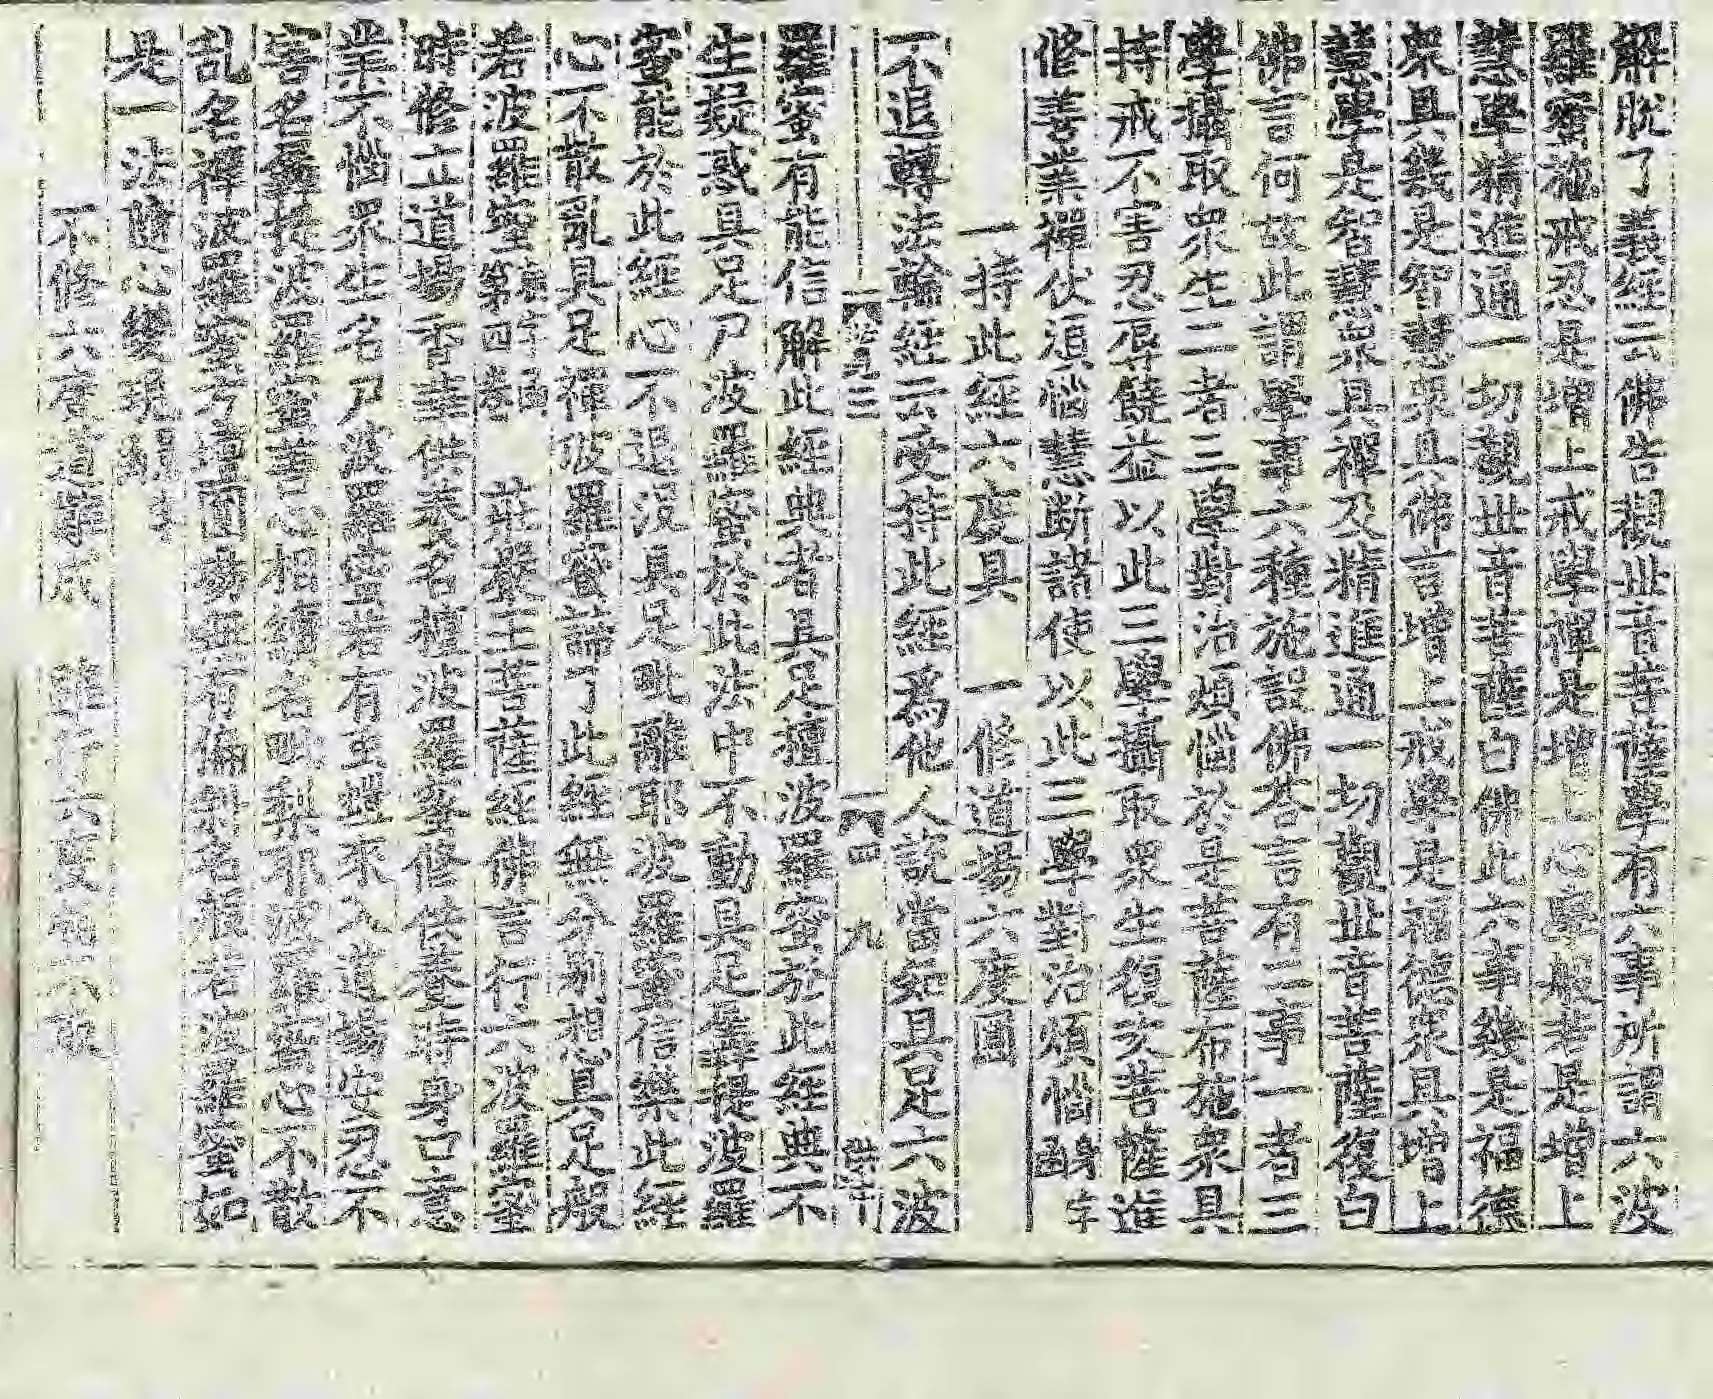 解脫了義經云佛告觀世音菩薩學有六事所謂六波
羅蜜施戒忍是增上戒學禪是增上心學般若是增上
慧學精進通一切觀世音菩薩白佛此六事幾是福德
衆具幾是智慧衆具佛言增上戒學是福德衆具增上
慧學是智慧衆具禪及精進通一切觀世音菩薩復白
佛言何故此謂學事六種施設佛荅言有二事一者三
學攝取衆生二者三學對治煩惱於是菩薩布施衆具
持戒不害忍辱饒益以此三學攝取衆生復次菩薩進
修善業禪伏煩惱慧斷諸使以此三學對治煩惱
一持此經六度具 一修道場六度圓
不退轉法輪經云受持此經爲他人說當知具足六波
六 四 九
羅蜜有能信解此經典者具足檀波羅蜜於此經典不
生疑惑具足尸波羅蜜於此法中不動具足羼提波羅
蜜能於此經心不退沒具足毗離耶波羅蜜信樂此經
心不散亂具足禪波羅蜜諦了此經無分別想具足般
若波羅蜜第四卷 莊嚴王菩薩經佛言行六波羅蜜
時修立道場香華供養名檀波羅蜜修供養時身口意
業不惱衆生名尸波羅蜜若有 來入道場安忍不
害名羼提波羅蜜善心相續名毗梨耶波羅蜜心不散
乱名禪波羅蜜 壇圓 無有偏 名般若波羅蜜如
是一法隨心變現
不修六度道難成 行六度